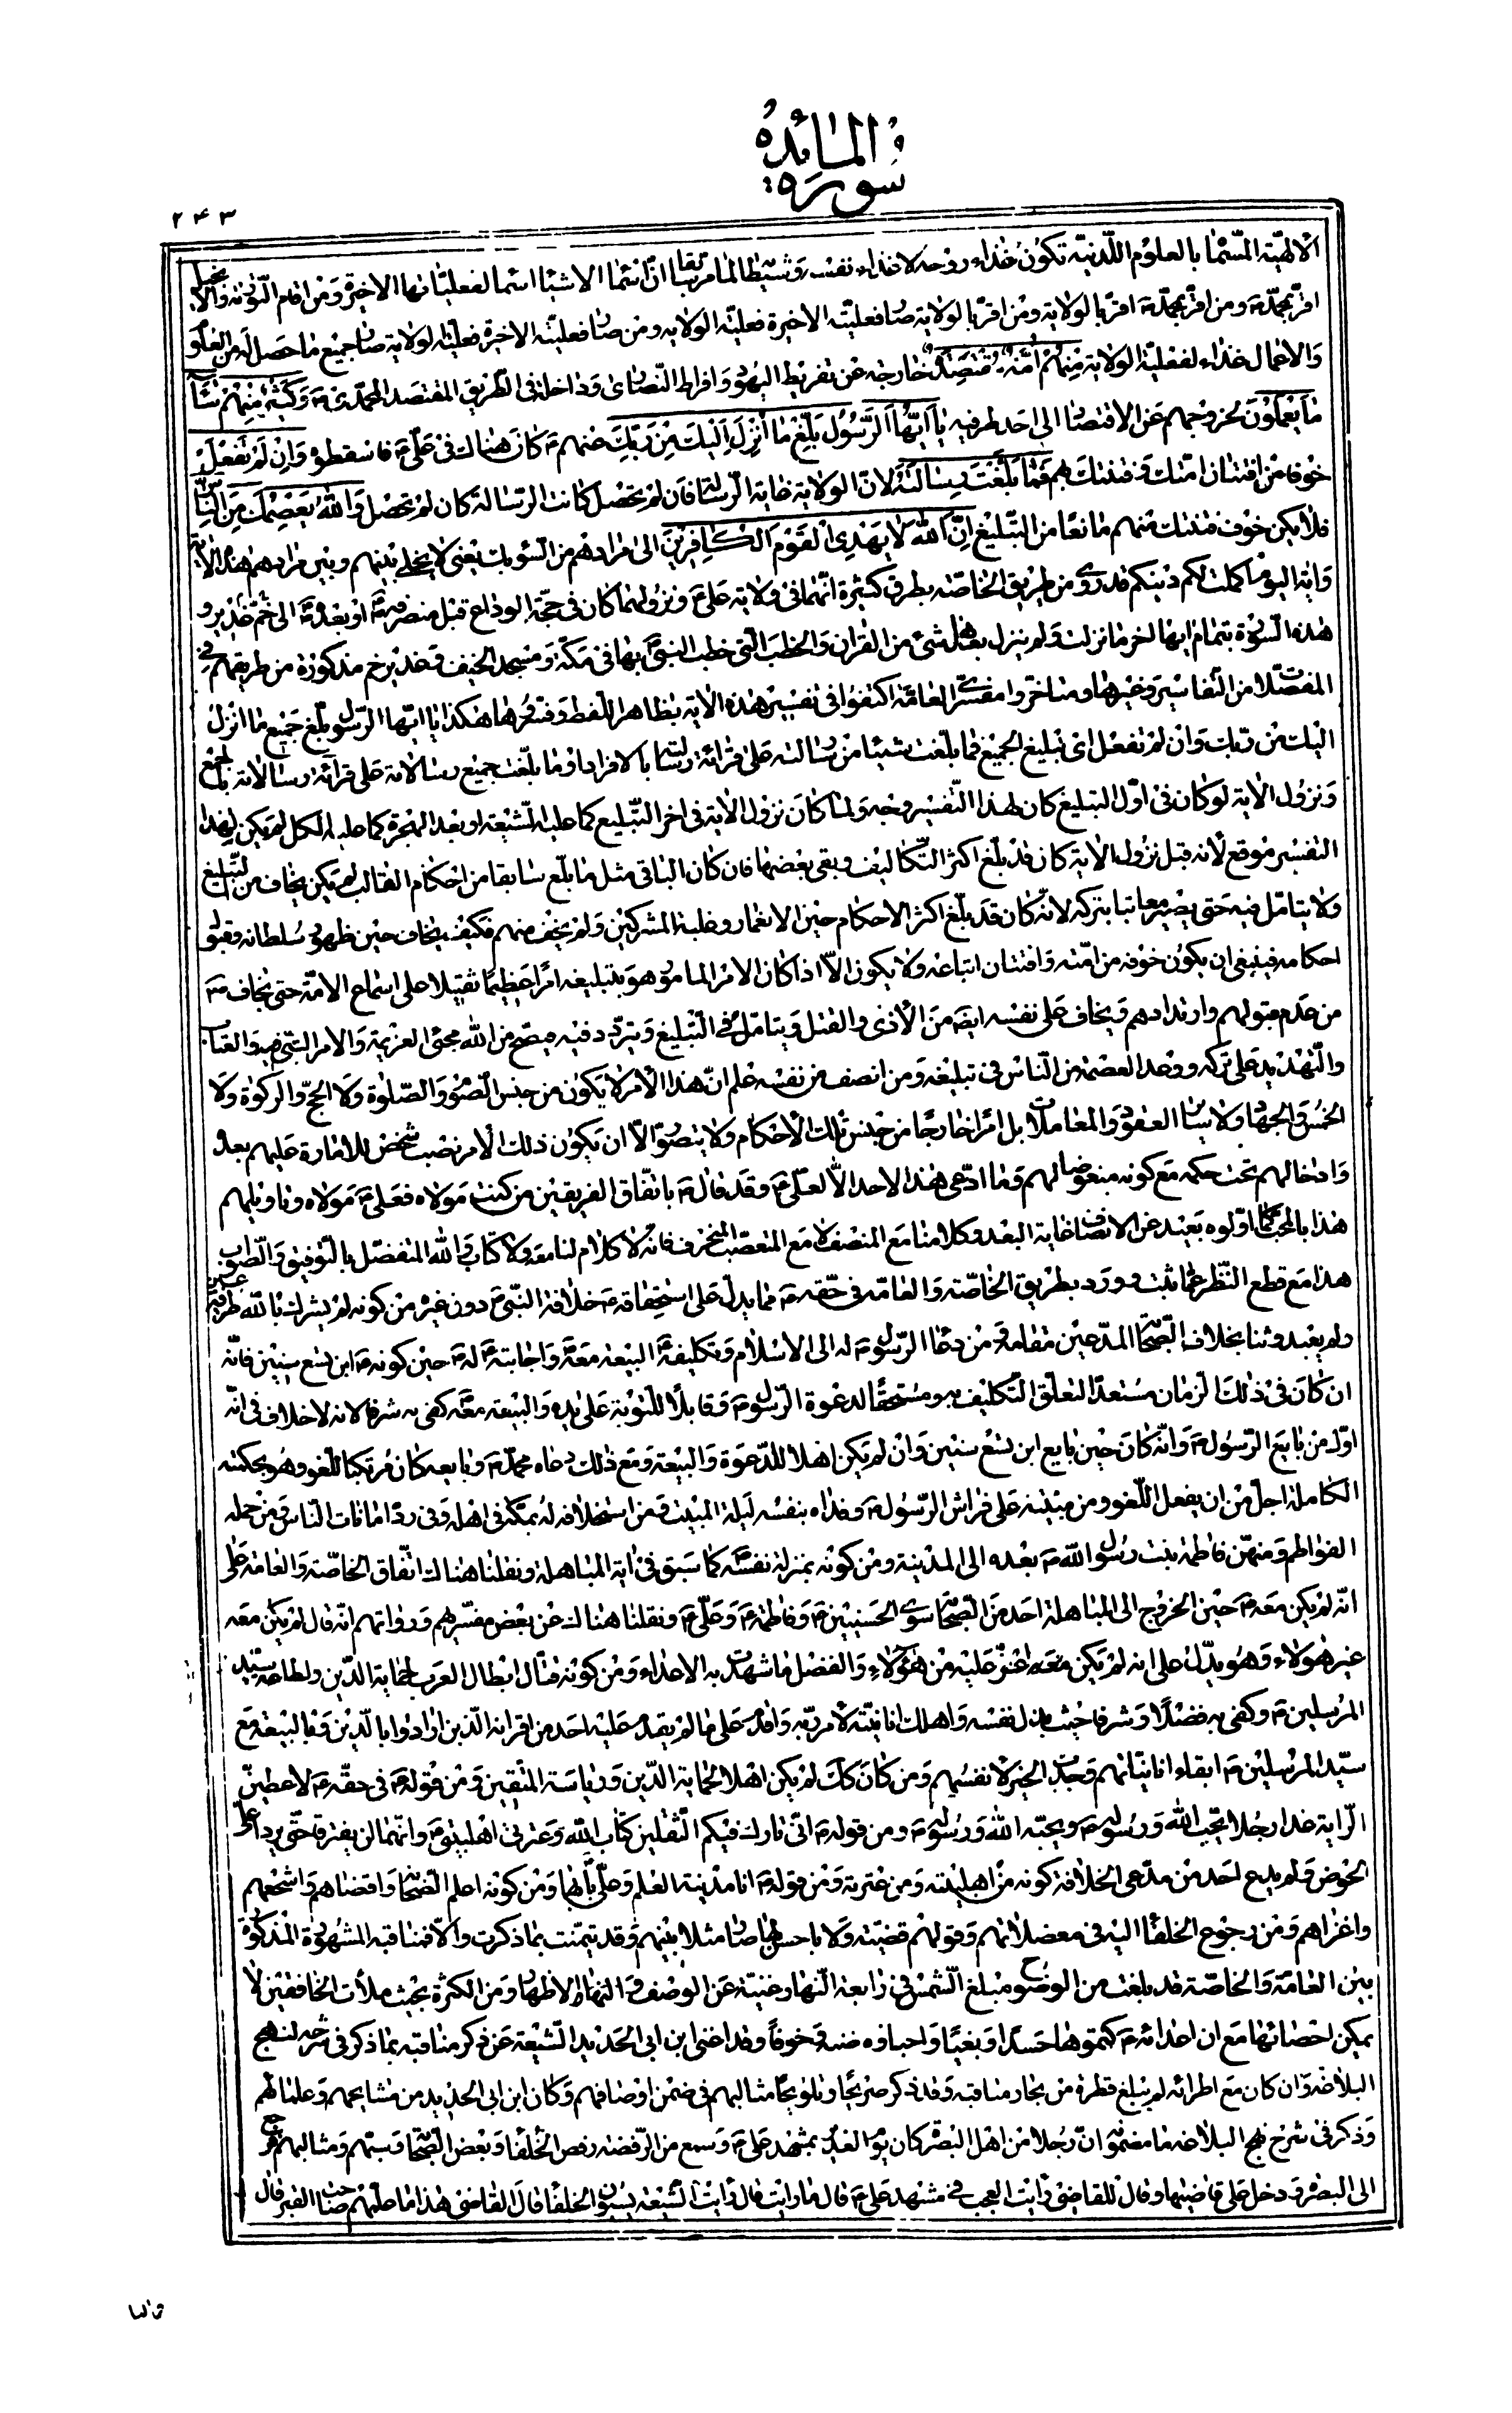 سورة المائدة
۲۴۳
الالهیّة المسّماة بالعلوم اللّدنیّة تکون غذاء روحه لا غذاء نفسه وشیطانه لما مرّ سابقا انّ اسماء الاشیاء اسماء لفعلیّاتها الاخیرة ومن اقام التّوریة والانجیل
اقرّ بمحمّد ص ومن اقرّ بمحمّد ص اقرّ بالولایة ومن اقرّ بالولایة صار فعلیّته الاخیرة فعلیّة الولایة ومن صار فعلیّته الاخیرة فعلیّة الولایة صار جمیع ما حصل له من العلوم
والاعمال غذاء لفعلیّة الولایة مِنْهُمْ أُمَّةٌ مُقْتَصِدَةٌ خارجة عن تفریط الیهود وافراط النّصاری وداخلة فی الطّریق المقتصد المحمّدی ص وَكَثِيرٌ مِنْهُمْ سَاءَ
مَا يَعْمَلُونَ لخروجهم عن الاقتصاد الی احد طرفیه يَا أَيُّهَا الرَّسُولُ بَلِّغْ مَا أُنْزِلَ إِلَيْكَ مِنْ رَبِّكَ عنهم ع کان هناک فی علیّ ع فاسقطوه وَإِنْ لَمْ تَفْعَلْ
خوفا من افتتان امّتک وفتنتک بهم فَمَا بَلَّغْتَ رِسَالَتَهُ لانّ الولایة غایة الرّسالة فان لم تحصل کانت الرّسالة کان لم تحصل وَاللَّهُ يَعْصِمُكَ مِنَ النَّاسِ
فلا یکن خوف فتنتک منهم مانعا من التّبلیغ إِنَّ اللَّهَ لَا يَهْدِي الْقَوْمَ الْكَافِرِينَ الی مرادهم من السّوء بک یعنی لا یخلّی بینهم وبین مرادهم هذه الآیة
وآیة الیوم اکملت لکم دینکم قد روی من طریق الخاصّة بطرق کثیرة انّهما فی ولایة علیّ ع ونزولهما کان فی حجّة الوداع قبل منصرفه ص او بعده ص الی خمّ غدیر و
هذه السّورة بتمام آیها اخر ما نزلت ولم ینزل بعدها شیء من القرآن والخطب الّتی خطب النّبیّ ص بها فی مکّة ومسجد الخیف وغدیر خم مذکورة من طریقهم فی
المفصّلات من التّفاسیر وغیرها ومتاخّروا مفسّری العامّة اکتفوا فی تفسیر هذه الآیة بظاهر اللّفظ وفسّروها هکذا یا ایّها الرّسول بلّغ جمیع ما انزل
الیک من ربّک وان لم تفعل ای تبلیغ الجمیع فما بلّغت شیئا من رسالته علی قرائة رسالته بالافراد او ما بلّغت جمیع رسالاته علی قرائة رسالاته بالجمع
ونزول الآیة لو کان فی اوّل التبلیغ کان لهذا التّفسیر وجه ولمّا کان نزول الآیة فی اخر التّبلیغ کما علیه الشّیعة او بعد الهجرة کما علیه الکل لم یکن لهذا
التفسیر موقع لانه قبل نزول الآیة کان قد بلّغ اکثر التّکالیف وبقی بعضها فان کان الباقی مثل ما بلّغ سابقا من احکام القالب لم یکن یخاف من التبلیغ
ولا یتامّل فیه حتی یصیر معاتبا بترکه لانّه کان قد بلّغ اکثر الاحکام حین الانغمار وغلبة المشرکین ولم یخف منهم فکیف یخاف حین ظهور سلطانه وقبول
احکامه فینبغی ان یکون خوفه من امّته وافتتان اتباعه ولا یکون الّا اذا کان الامر المامور هو بتبلیغه امرا عظیما ثقیلا علی اسماع الامّة حتی یخاف ص
من عدم قبولهم وارتدادهم ویخاف علی نفسه ایضا من الاذی والقتل ویتامّل فی التّبلیغ ویتردّد فیه فیصحّ من الله مجیء العزیمة والامر البتّی فیه والعتاب
والتّهدید علی ترکه ووعد العصمة من النّاس فی تبلیغه ومن انصف من نفسه علم انّ هذا الامر لا یکون من جنس الصّوم والصّلوة ولا الحجّ والزکوة ولا
الخمس والجهاد ولا سائر العقود والمعاملات بل امرا خارجا من جنس تلک الاحکام ولا یتصوّر الّا ان یکون ذلک الامر نصب شخص للامارة علیهم بعده
وادخالهم تحت حکمه مع کونه مبغوضا لهم وما ادّعی هذا لاحد الّا لعلیّ ع وقد قال ص باتّفاق الفریقین من کنت مولاه فعلیّ ع مولاه وتاویلهم
هذا بالمحبّ کما اوّلوه بعید عن الانصاف غایة البعد وکلامنا مع المنصف لا مع المتعصّب المنحرف فانّه لا کلام لنا معه ولا کتاب والله المتفضّل بالتوفیق والصّواب
هذا مع قطع النّظر عمّا ثبت وورد بطریق الخاصّة والعامّة فی حقّه ع ممّا یدلّ علی استحقاقه ع خلافة النّبیّ ص دون غیره من کونه لم یشرک بالله طرفة عین
ولم یعبد وثنا بخلاف الصّحابة المدّعین مقامه ومن دعاء الرّسول ص له الی الاسلام وتکلیفه ص البیعة معه ص واجابته ع له ص حین کونه ع ابن تسع سنین فانّه
ان کان فی ذلک الزّمان مستعدّا لتعلّق التّکلیف به ومستحقّا لدعوة الرّسول ص وقابلا للتّوبة علی یده والبیعة معه ص کفی به شرفا لانه لا خلاف فی انّه
اوّل من بایع الرّسول ص وانّه کان حین بایع ابن تسع سنین وان لم یکن اهلا للدّعوة والبیعة ومع ذلک دعاه محمّد ص وبایعه کان مرتکبا للّغو وهو بحکمته
الکاملة اجلّ من ان یفعل اللّغو ومن مبیته علی فراش الرّسول ص وفداه بنفسه لیلة المبیت ومن استخلافه له بمکّة فی اهله وفی ردّ امانات الناس ومن حمله
الفواطم ومنهنّ فاطمة بنت رسول الله ص بعده الی المدینة ومن کونه بمنزلة نفسه ص کما سبق فی آیة المباهلة ونقلنا هناک اتّفاق الخاصّة والعامّة علی
انّه لم یکن معه ص حین الخروج الی المباهلة احد من الصّحابة سوی الحسنین ع وفاطمة ع وعلیّ ع ونقلنا هناک عن بعض مفسّریهم ورواتهم انّه قال لم یکن معه
غیر هؤلاء وهو یدلّ علی انه لم یکن معه اعزّ علیه من هؤلاء والفضل ما شهدت به الاعداء ومن کونه قتّال ابطال العرب لحمایة الدّین ولطاعة سیّد
المرسلین ص وکفی به فضلا وشرفا حیث بذل نفسه واهلک انانیّته لامر ربّه واقدم علی ما لم یقدم علیه احد من اقرانه الّذین ارادوا بالدّین وبالبیعة مع
سیّد المرسلین ص ابقاء انانیّاتهم وجذب الخیر لانفسهم ومن کان کک لم یکن اهلا لحمایة الدّین وریاسة المتّقین ومن قوله ص فی حقّه ع لاعطینّ
الرّایة غدا رجلا یحبّ الله ورسوله ص ویحبّه الله ورسوله ص ومن قوله ص انّی تارک فیکم الثّقلین کتاب الله وعترتی اهلبیتی ع وانّهما لن یفترقا حتّی یردا علیّ
الحوض ولم یدع احد من مدّعی الخلافة کونه من اهلبیته ومن عترته ومن قوله ص انا مدینة العلم وعلیّ بابها ومن کونه اعلم الصّحابة واقضاهم واشجعهم
واغزاهم ومن رجوع الخلفاء الیه فی معضلاتهم وقولهم قضیّة ولا باحسن لها صار مثلا بینهم وقد تیمّنت بما ذکرت والّا فمناقبه المشهورة المذکورة
بین العامّة والخاصّة قد بلغت من الوضوح مبلغ الشّمس فی رابعة النّهار غنیّة عن الوصف والاظهار ومن الکثرة بحیث ملات الخافقین لا
یمکن احصائها مع ان اعدائه ع کتموها حسدا وبغیا واحبّاؤه ضنة وخوفا وقد اغنی ابن ابی الحدید الشّیعة عن ذکر مناقبه بما ذکر فی شرحه لنهج
البلاغة وان کان مع اطرائه لم یبلغ قطرة من بحار مناقبه وقد ذکر صریحا وتلویحا مثالبهم فی ضمن اوصافهم وکان ابن ابی الحدید من مشایخهم وعلمائهم
وذکر فی شرح نهج البلاغة ما مضمونه انّ رجلا من اهل البصرة کان یوم الغدیر بمشهد علیّ ع وسمع من الرّفضة رفض الخلفاء وبعض الصّحابة وسبّهم ومثالبهم فرجع
الی البصرة ودخل علی قاضیها وقال للقاضی رایت العجب فی مشهد علیّ ع قال ما رایت قال رایت الشّیعة یسبّون الخلفاء قال القاضی هذا ما علّمهم صاحب القبر قال